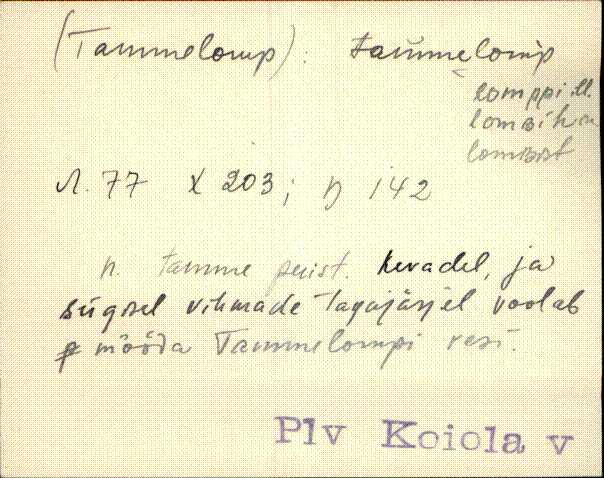 (Tammelomp): tammelomp
lomppi ill.
lomsihn
lombist
Л. 77 X 203; η 142
n. tamme peist. kevadel, ja
sügisel vihmade tagajärjel voolab
mööda Tammelompi vesi.
Plv Koiola v